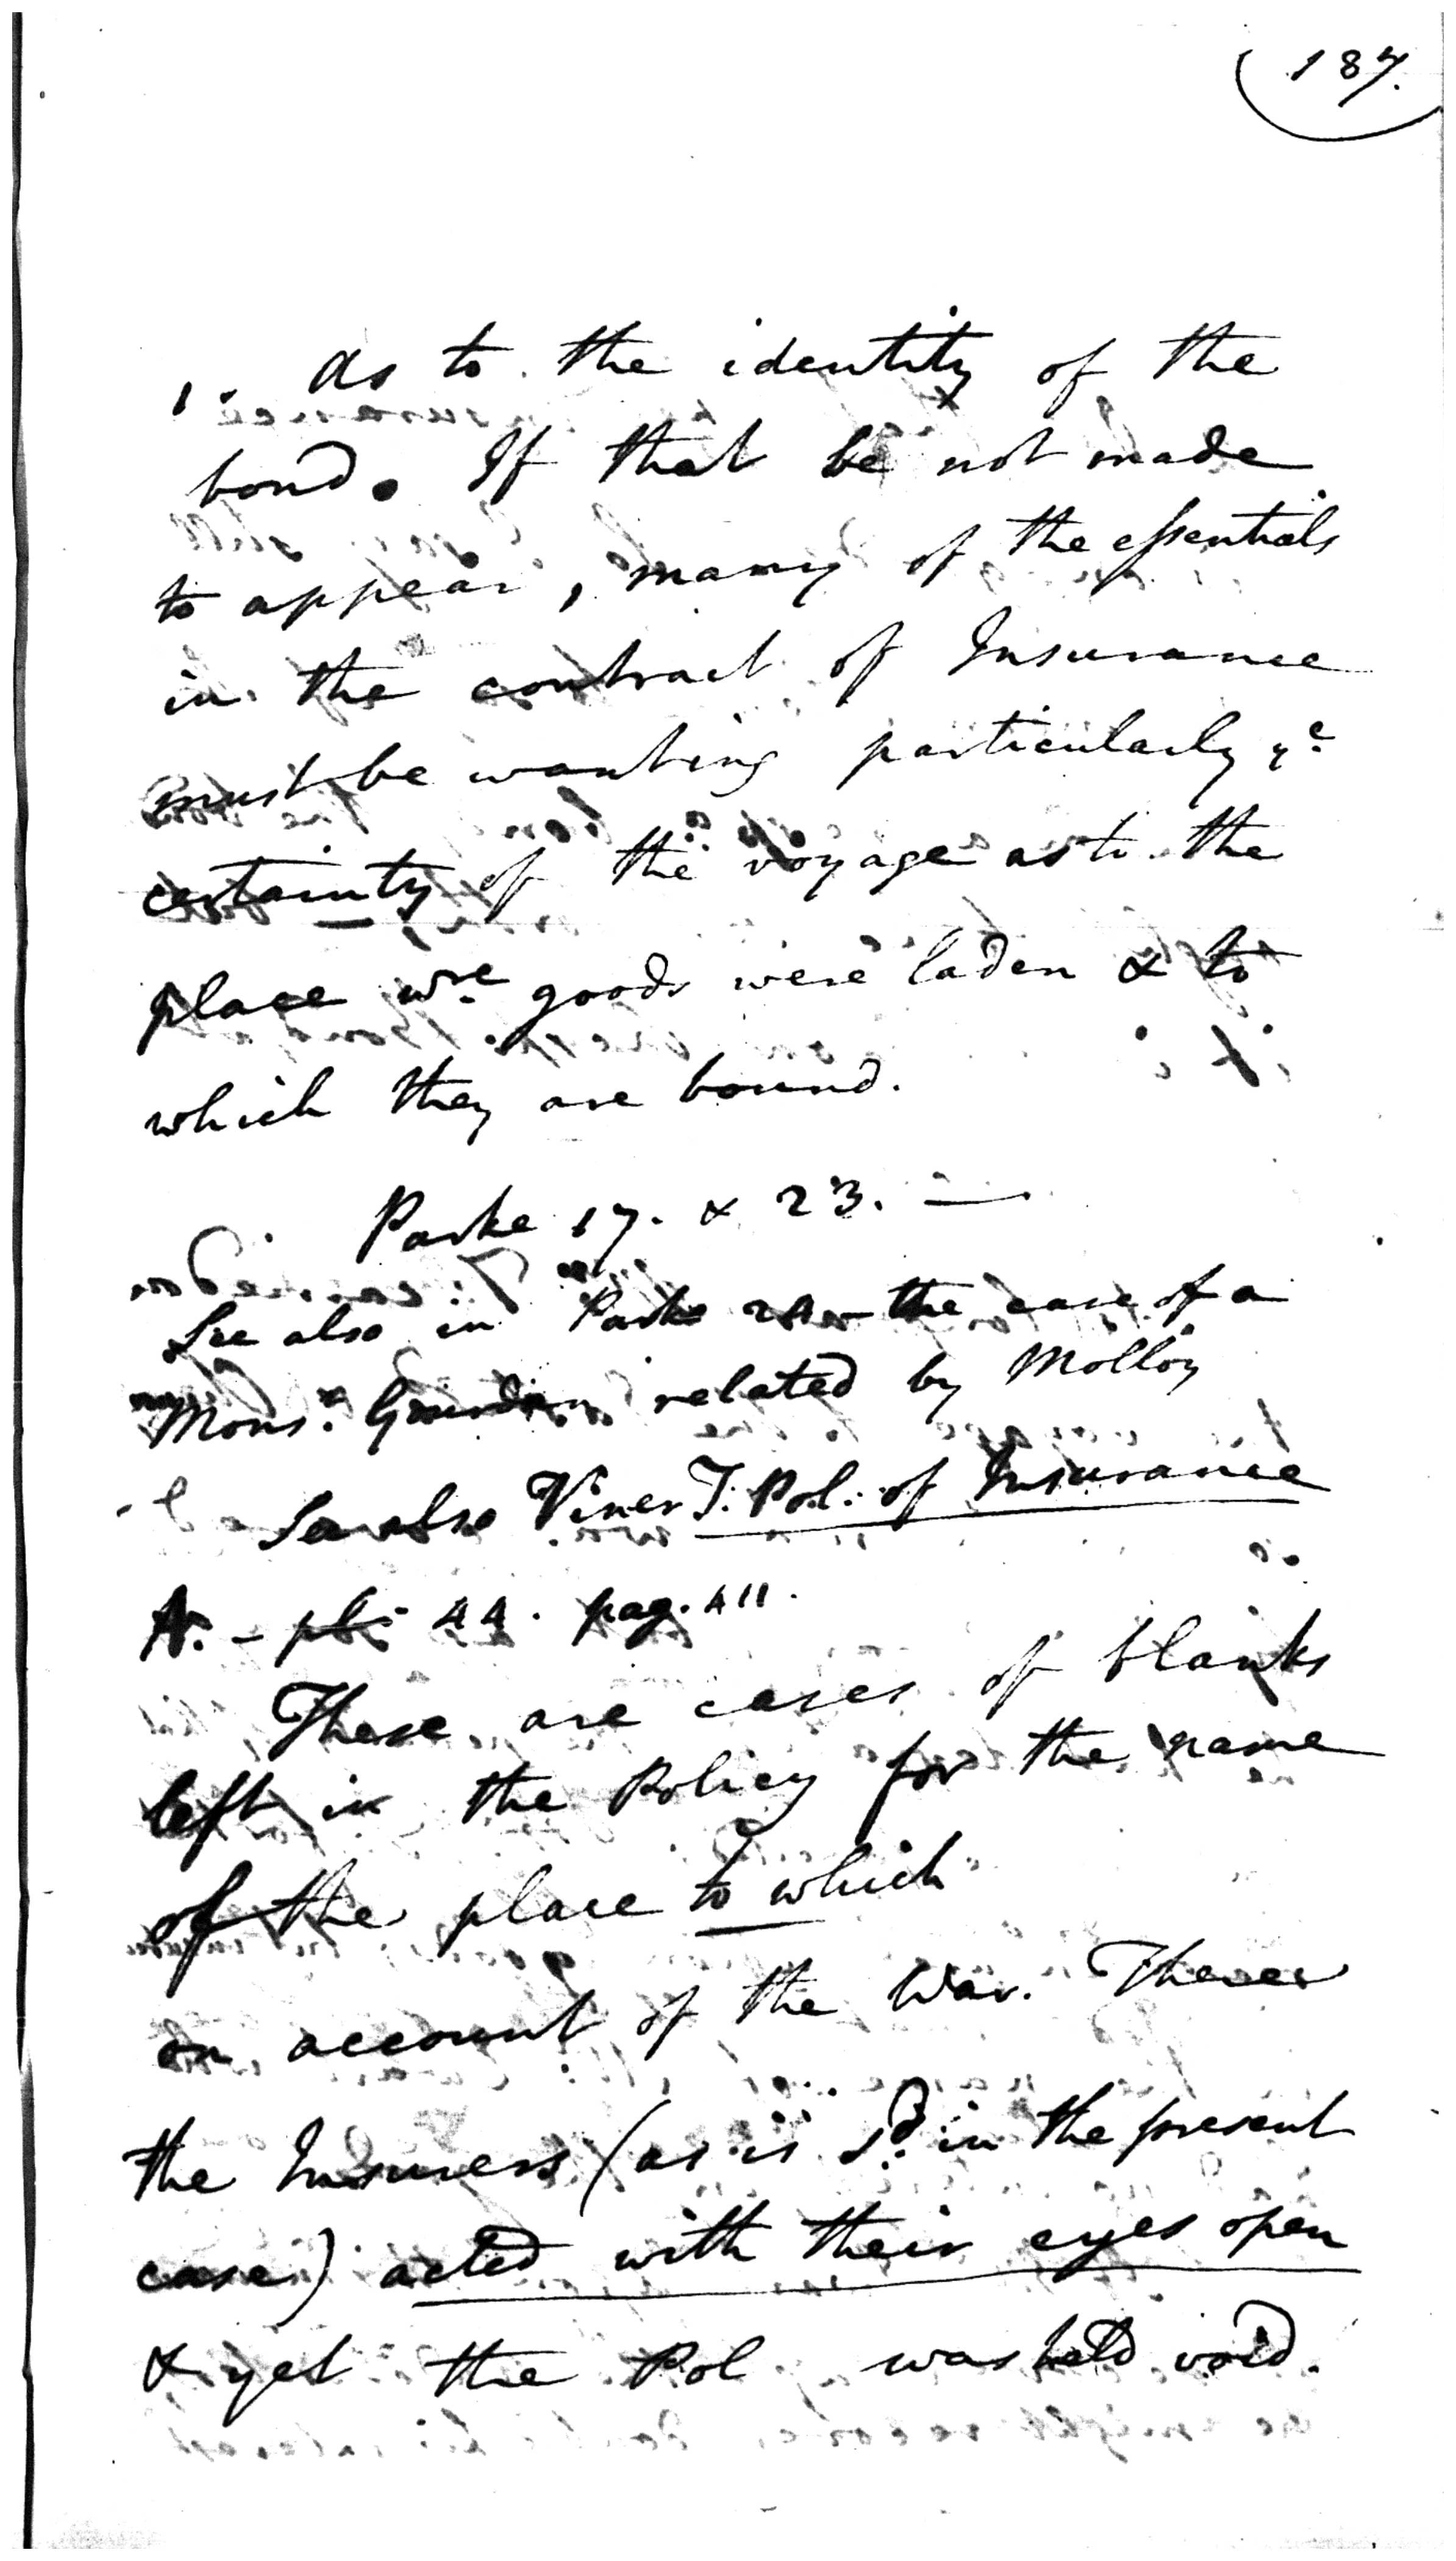 187.
1. As to the identity of the
bond. If that be not made
to appear, many of the essentials
in the contract of Insurance
must be wanting particularly ye
certainty of the voyage as to the
place wre goods were laden & to
which they are bound.
Parke 17. & 23. —
See also in Parke 24 the case of a
Monsr. related by Molloy
See also Viner T. Pol. of Insurance
A. - pl. 44. pag. 411.
These are cases of blanks
left in the Policy for the name
of the place to which
on account of the War. There
the Insurers (as is sd. in the present
case) acted with their eyes open
& yet the Pol was held void.